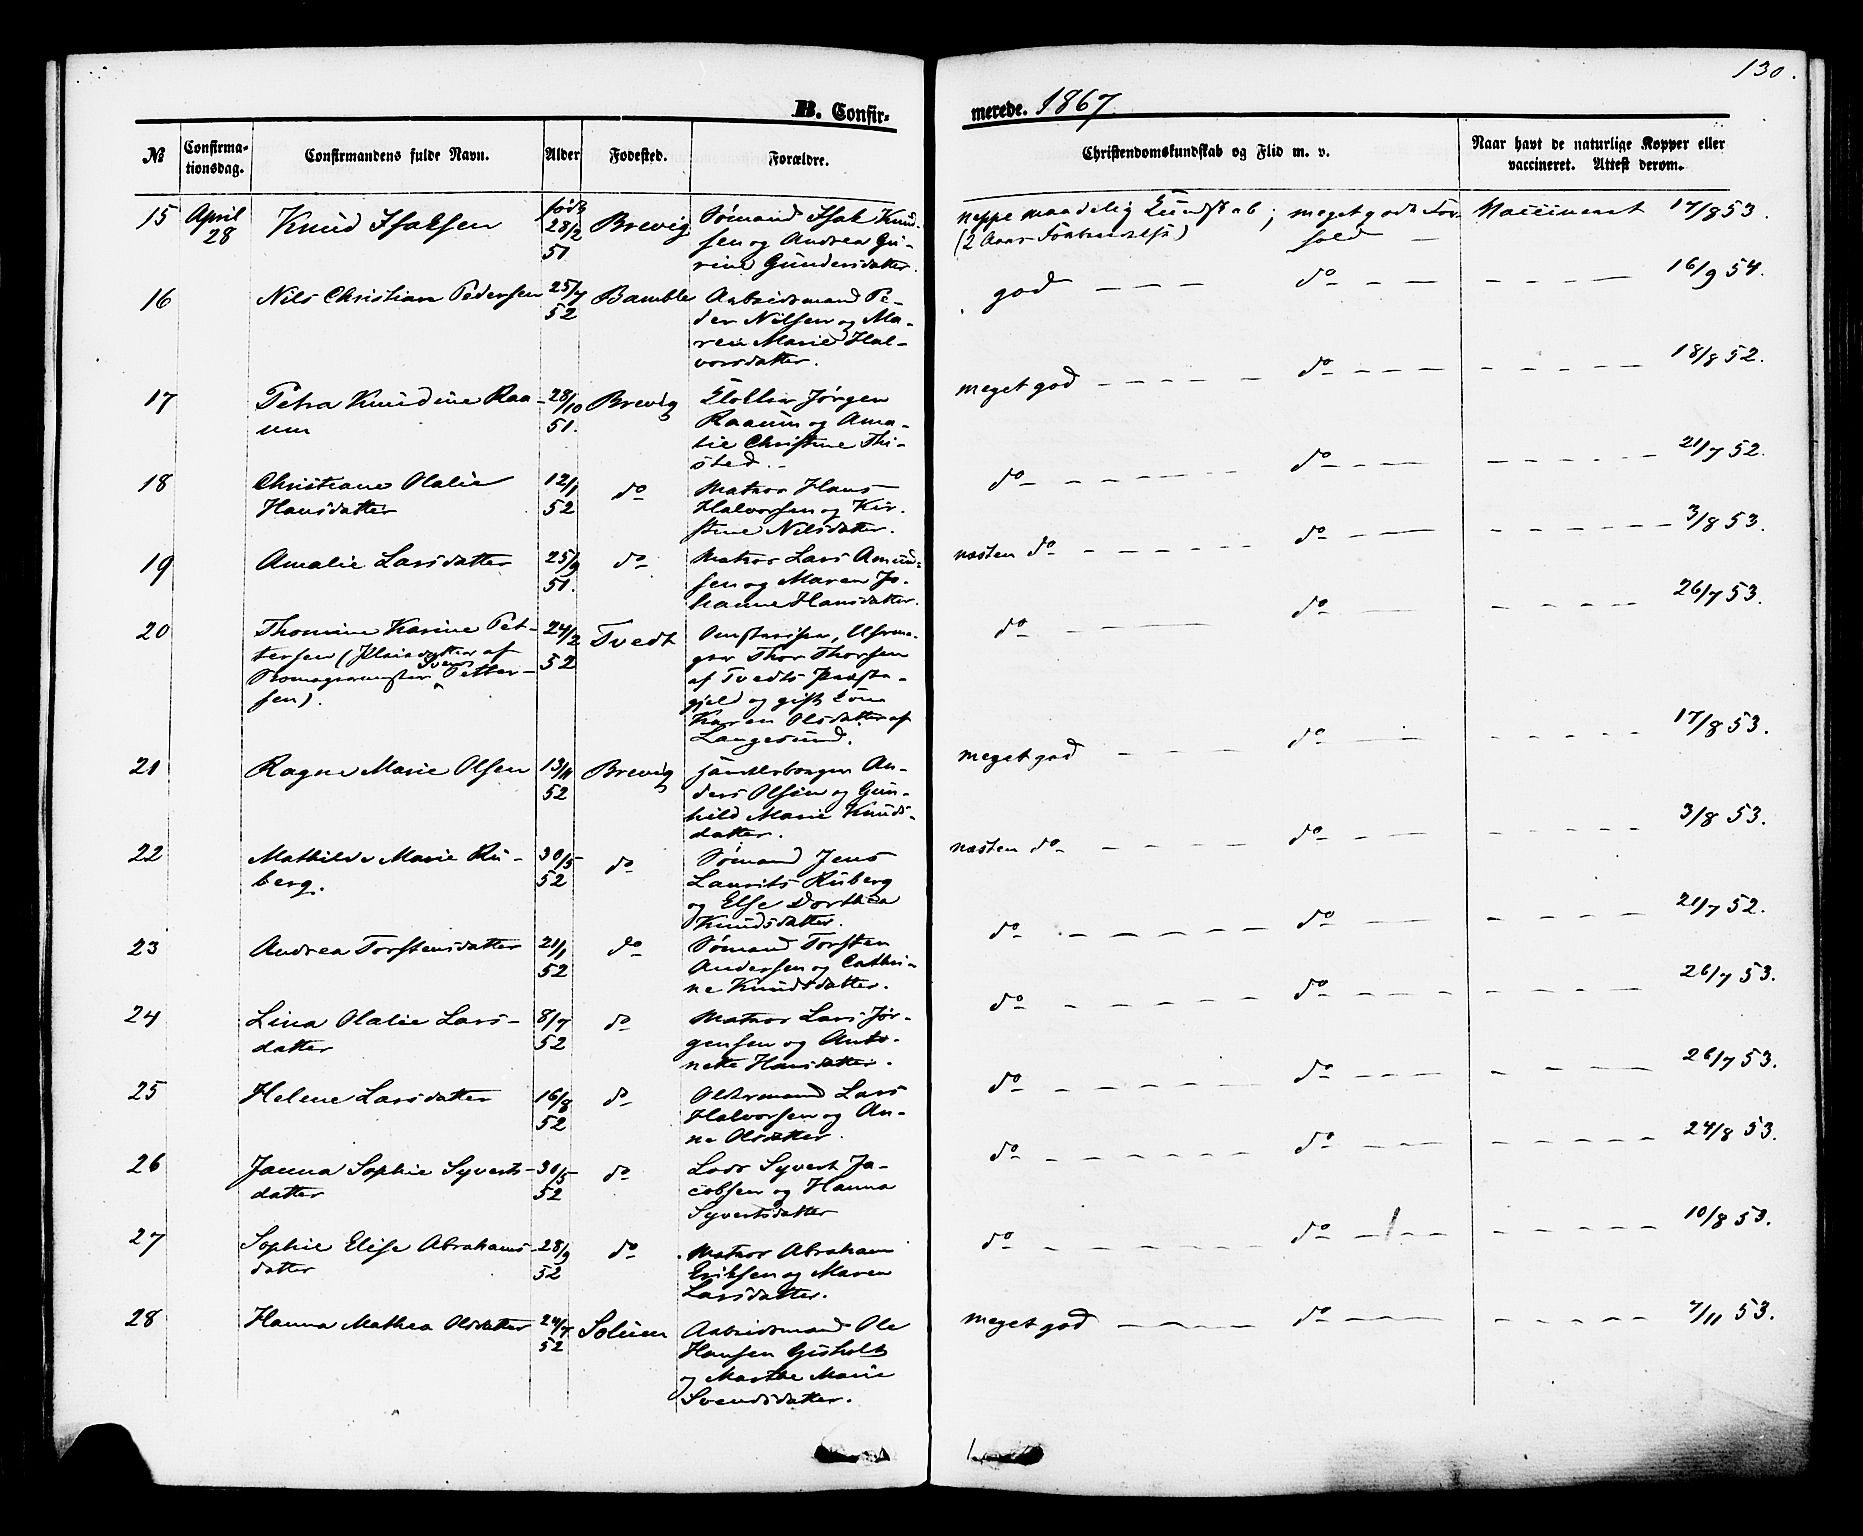 130.
B. Confirmerede. 1867
№ Confirmationsdag. Confirmandens fulde Navn. Alder Fødested. Forældre. Christendomskundskab og Flid m. v. Naar havt de naturlige Kopper eller vaccineret. Attest derom.
15 April 28 Knud Isaksen født 28/2 51 Brevig Sømand Isak Knud-
sen og Andrea Gu-
rine Gundersdatter.
neppe maadelig Kundskab; meget godt For-
(2 Aars Forberedelse) hold — Vaccineret 17/8 53.
16 Nils Christian Pedersen 25/7 52 Bamble Arbeidsmand Pe-
der Nilsen og Ma-
ren Marie Hal-
vorsdatter.
god — — — do — — — — — — 16/9 54.
17 Petra Knudine Raa-
um 28/10 51. Brevig Klokker Jørgen
Raaum og Ama-
lie Christine Thi-
sted.
meget god — — — do — — — — — — 18/8 52.
18 Christiane Olalie
Hansdatter 12/1 52 do Matros Hans
Halvorsen og Kir-
stine Nilsdatter.
do — — — do — — — — — — 21/7 52.
19 Amalie Larsdatter 25/9 51. do Matros Lars Amund-
sen og Maren Jo-
hanne Hansdatter.
næsten do — — — do — — — — — — 3/8 53.
20 Thomine Karine Pet-
tersen (Pleiedatter af
Svend
Petter-
sen). 24/2 52 Tvedt
Thor Thorsen
af Tvedts Præste-
gjeld og gift Kone
Karen Olsdatter af
Langesund.
do — — — do — — — — — — 26/7 53.
21 Ragne Marie Olsen 13/11 52 Brevig An-
ders Olsen og Gun-
hild Marie Knuds-
datter.
meget god — — — do — — — — — — 17/8 53.
22 Mathilde Marie Ru-
berg. 30/5 52 do Sømand Jens
Laurits Ruberg
og Else Dorthea
Knudsdatter.
næsten do — — — do — — — — — — 3/8 53.
23 Andrea Torstensdatter 21/1 52 do Sømand Torsten
Andersen og Cathri-
ne Knudsdatter.
do — — — do — — — — — — 21/7 52.
24 Lina Olalie Lars-
datter 8/7 52 do Matros Lars Jør-
gensen og Anto-
nette Hansdatter.
do — — — do — — — — — — 26/7 53.
25 Helene Larsdatter 16/8 52 do Oldermand Lars
Halvorsen og An-
ne Olsdatter.
do — — — do — — — — — — 26/7 53.
26 Janna Sophie Syverts-
datter 30/5 52 do Lods Syvert Ja-
cobsen og Hanna
Syvertsdatter
do — — — do — — — — — — 24/8 53.
27 Sophie Elise Abrahams-
datter 28/9 52 do Matros Abraham
Eriksen og Maren
Larsdatter.
do — — — do — — — — — — 10/8 53.
28 Hanna Mathea Olsdatter 24/7 52 Solum Arbeidsmand Ole
Hansen Gisholt
og Marthe Marie
Svendsdatter.
meget god — — — do — — — — — — 7/11 53.